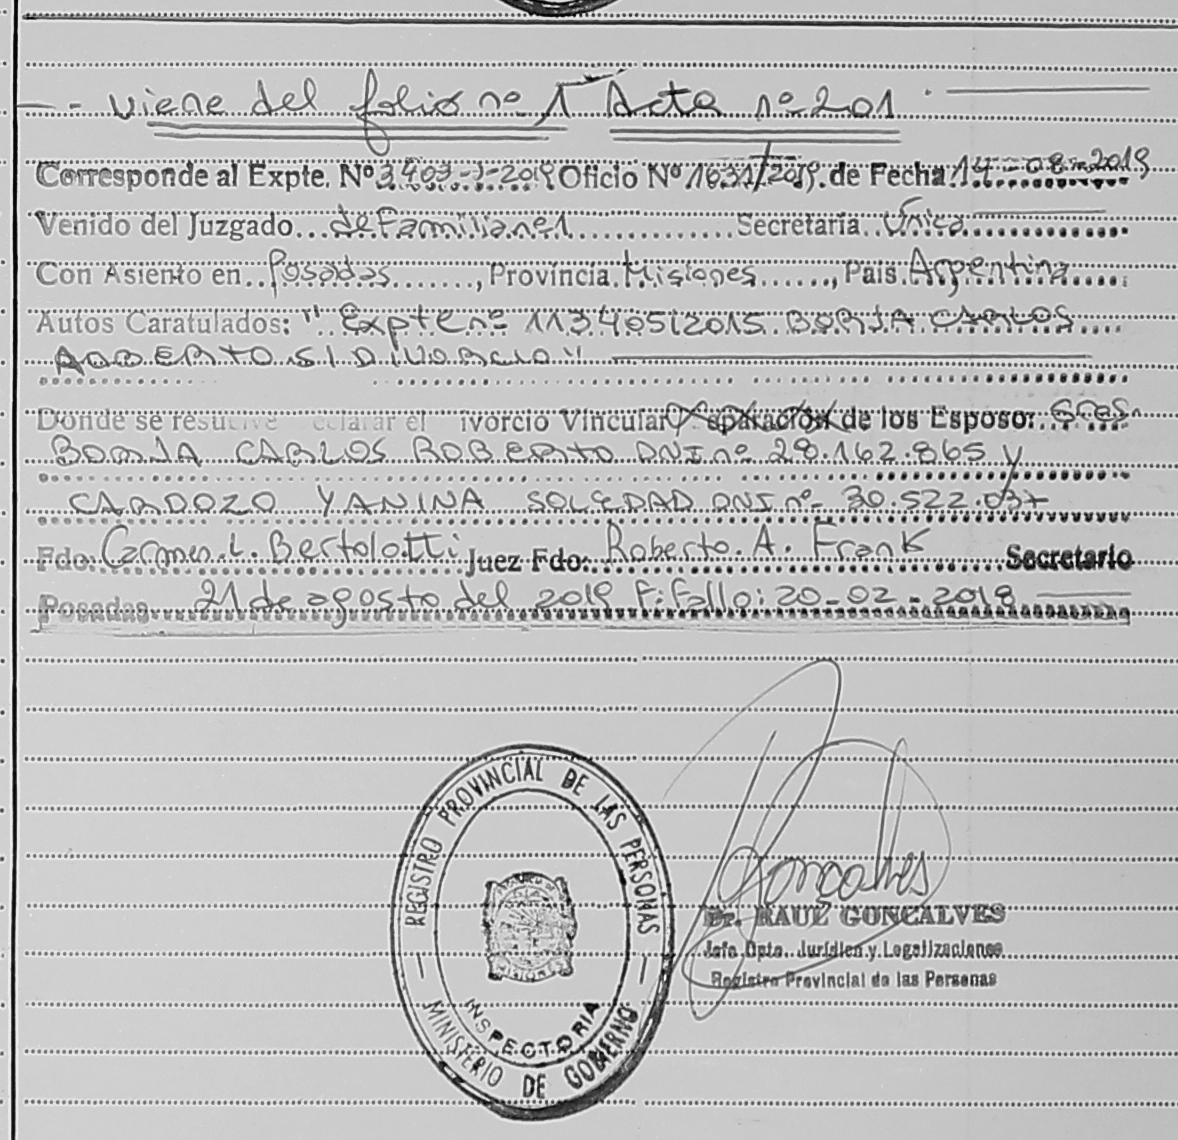 -.- viene del folio nº 1 Acta nº 201
Corresponde al Expte. Nº 3403-J-2019 Oficio Nº 1631/2019. de Fecha 14-08-2019
Venido del Juzgado de Familia nº1 Secretaría Única
Con Asiento en Posadas, Provincia Misiones, País Argentina
Autos Caratulados: "Expte nº 113405/2015 BORJA CARLOS
ROBERTO S/DIVORCIO"
Donde se resuelve eclarar el ivorcio Vincular de los Esposo: Sres.
BORJA CARLOS ROBERTO DNI nº 28.162.865 y
CARDOZO YANINA SOLEDAD DNI nº 30.522.037
Fdo: Carmen L. Bertolotti Juez Fdo: Roberto A. Frank Secretario
Posadas 21 de agosto del 2019 F: Fallo: 20-02-2018
REGISTRO PROVINCIAL DE LAS PERSONAS
INSPECTORIA
MINISTERIO DE GOBIERNO
Gonçalves
Dr. RAUL GONCALVES
Jefe Dpto. Jurídica y Legalizaciones
Registro Provincial de las Personas